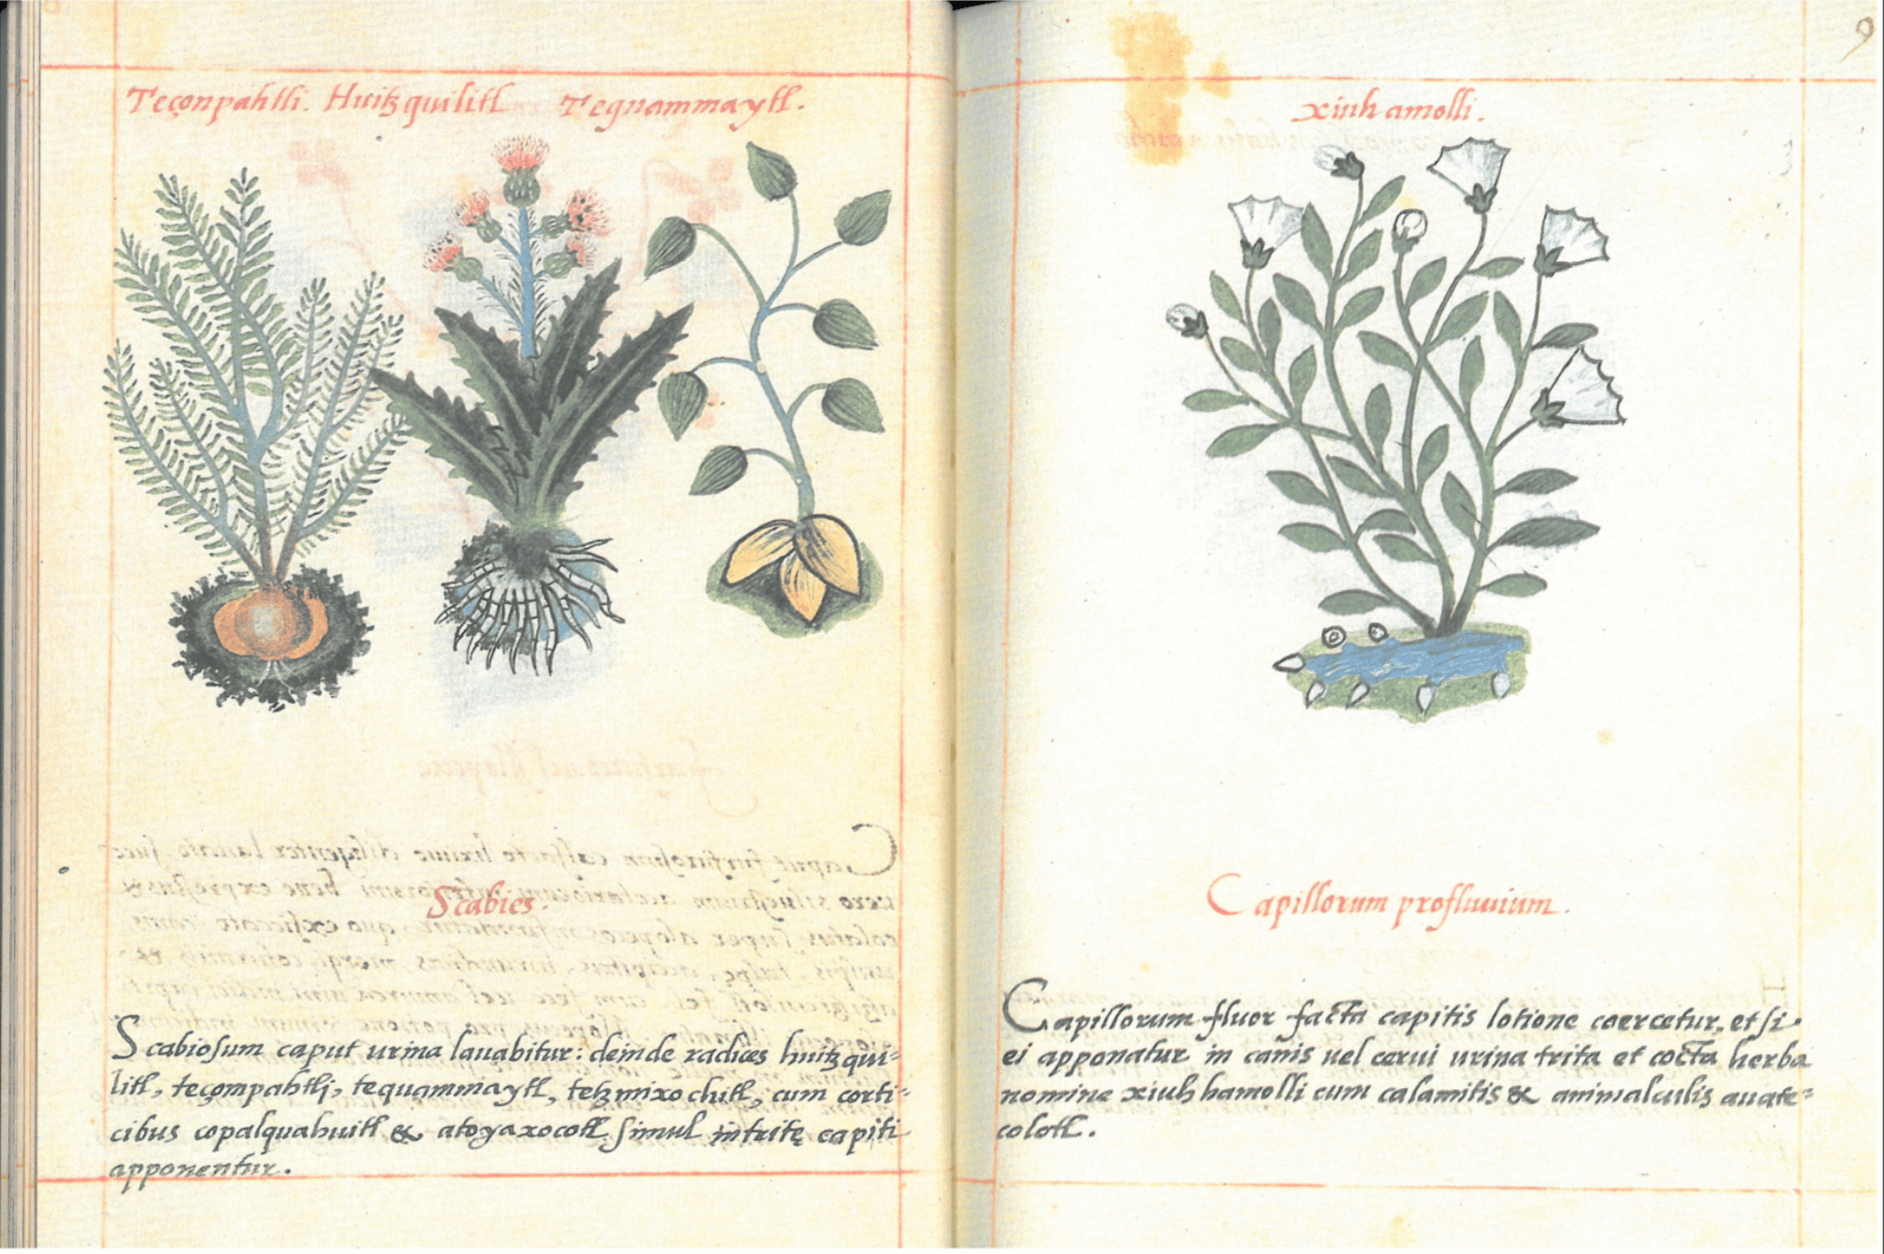 Teçonpahtli. Huitzquilitl Tequammaytl.
Scabies
Scabiosum caput urina lauabitur: deinde radices huitzqui=
litl, teçompahtli, tequammaytl, tetzmixochitl, cum corti=
cibus copalquahuitl & atoyaxocotl simul intritę capiti
apponentur.
9
xiuhamolli.
Capillorum profluuium.
Capillorum fluor facta capitis lotione coercetur, et si
ei apponatur in canis uel cerui urina trita et cocta herba
nomine xiuhhamolli cum calamitis & animalculis auate=
colotl.